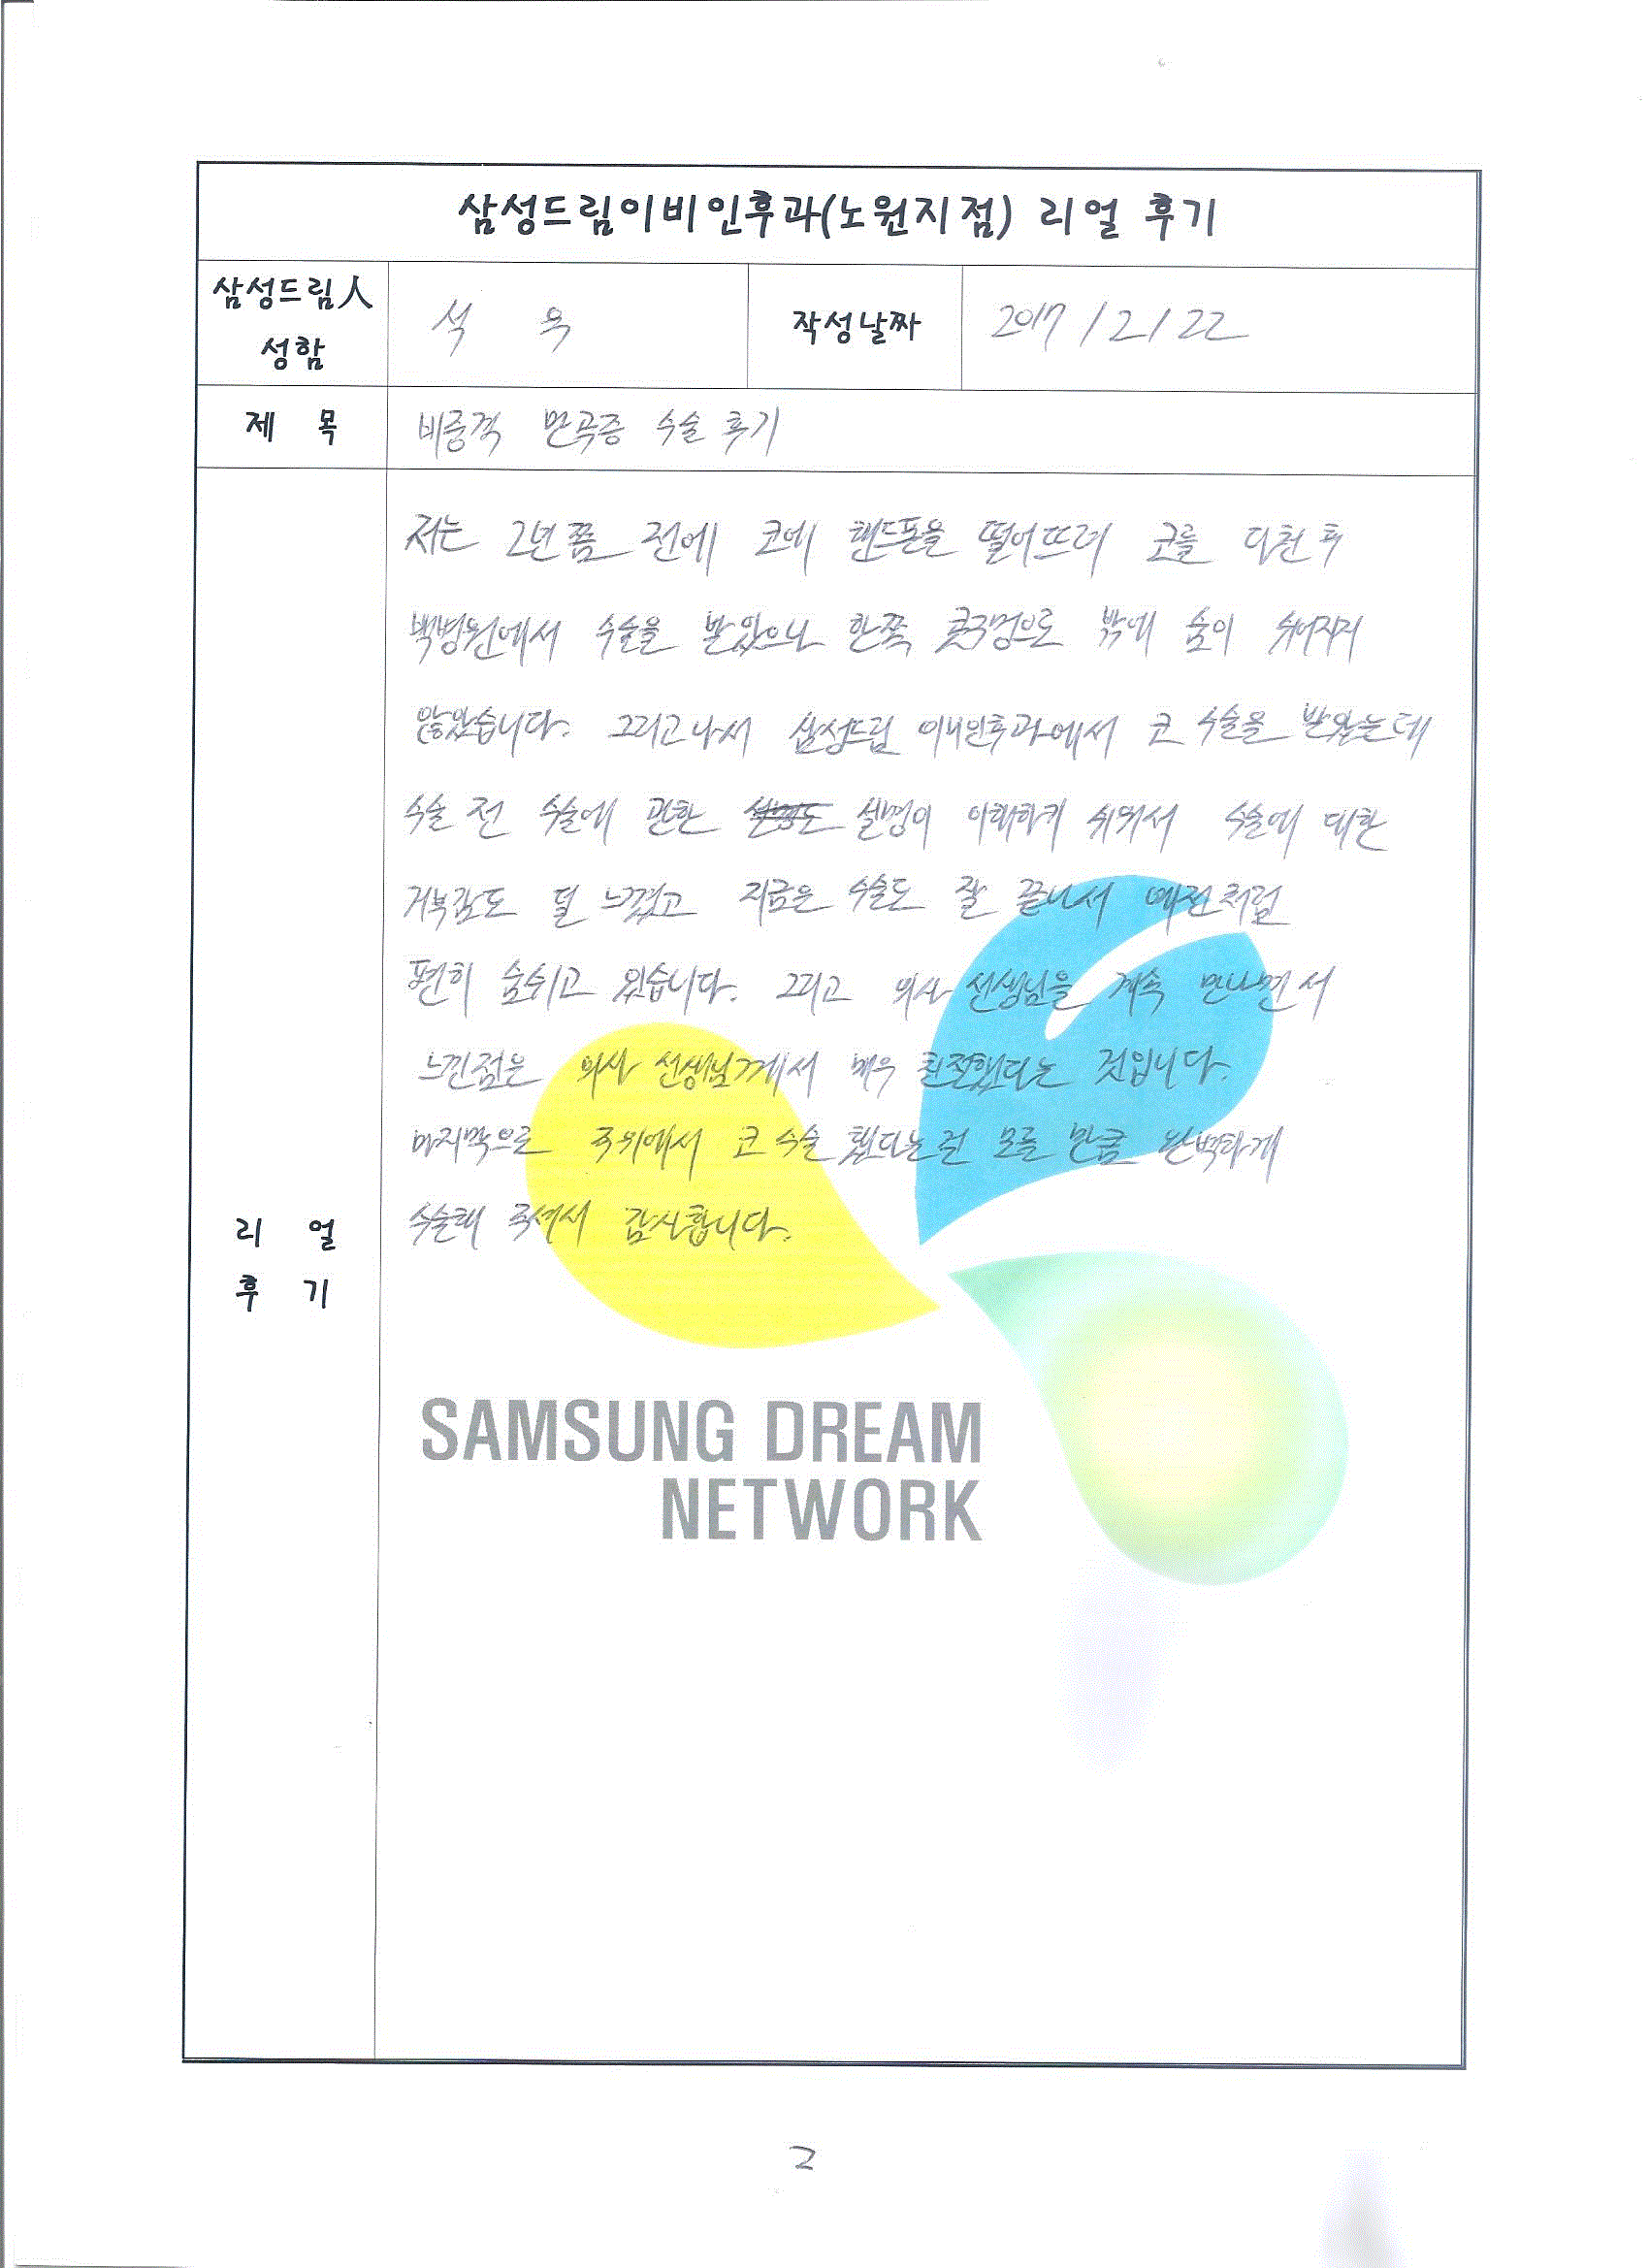 삼성드림이비인후과(노원지점) 리얼 후기
삼성드림人
성함
석 욱
작성날짜
2017/2/22
제 목
비중격 만곡증 수술 후기
리 얼
후 기
저는 2년쯤 전에 코에 핸드폰을 떨어뜨려 코를 다친 후
백병원에서 수술을 받았으나 한쪽 콧구멍으로 밖에 숨이 쉬어지지
않았습니다. 그리고나서 삼성드림 이비인후과에서 코 수술을 받았는데
수술 전 수술에 관한 설명도 설명이 이해하기 쉬워서 수술에 대한
거부감도 덜 느꼈고 지금은 수술도 잘 끝나서 예전처럼
편히 숨쉬고 있습니다. 그리고 의사 선생님을 계속 만나면서
느낀점은 의사 선생님께서 매우 친절했다는 것입니다.
마지막으로 주위에서 코 수술 했다는걸 모를 만큼 완벽하게
수술해 주셔서 감사합니다.
SAMSUNG DREAM
NETWORK
2